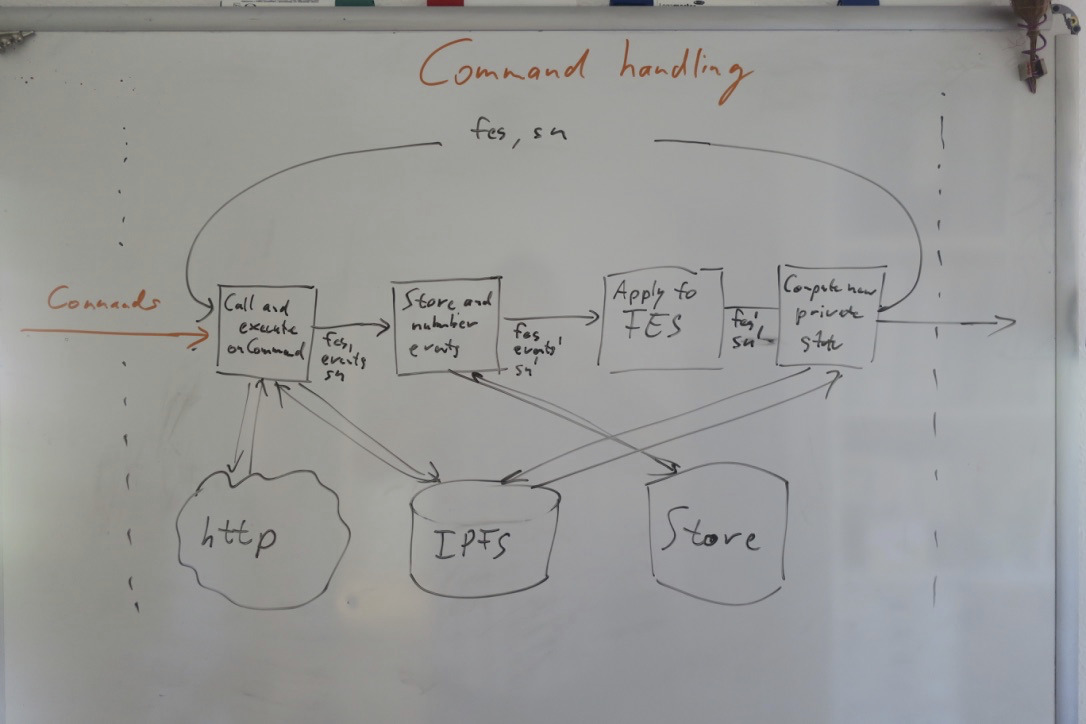 Command handling
fes, sn
Commands
Call and
execute
onCommand
fes,
events
sn
Store and
number
events
fes
events'
sn'
Apply to
FES
fes'
sn'
Compute new
private
state
http
IPFS
Store